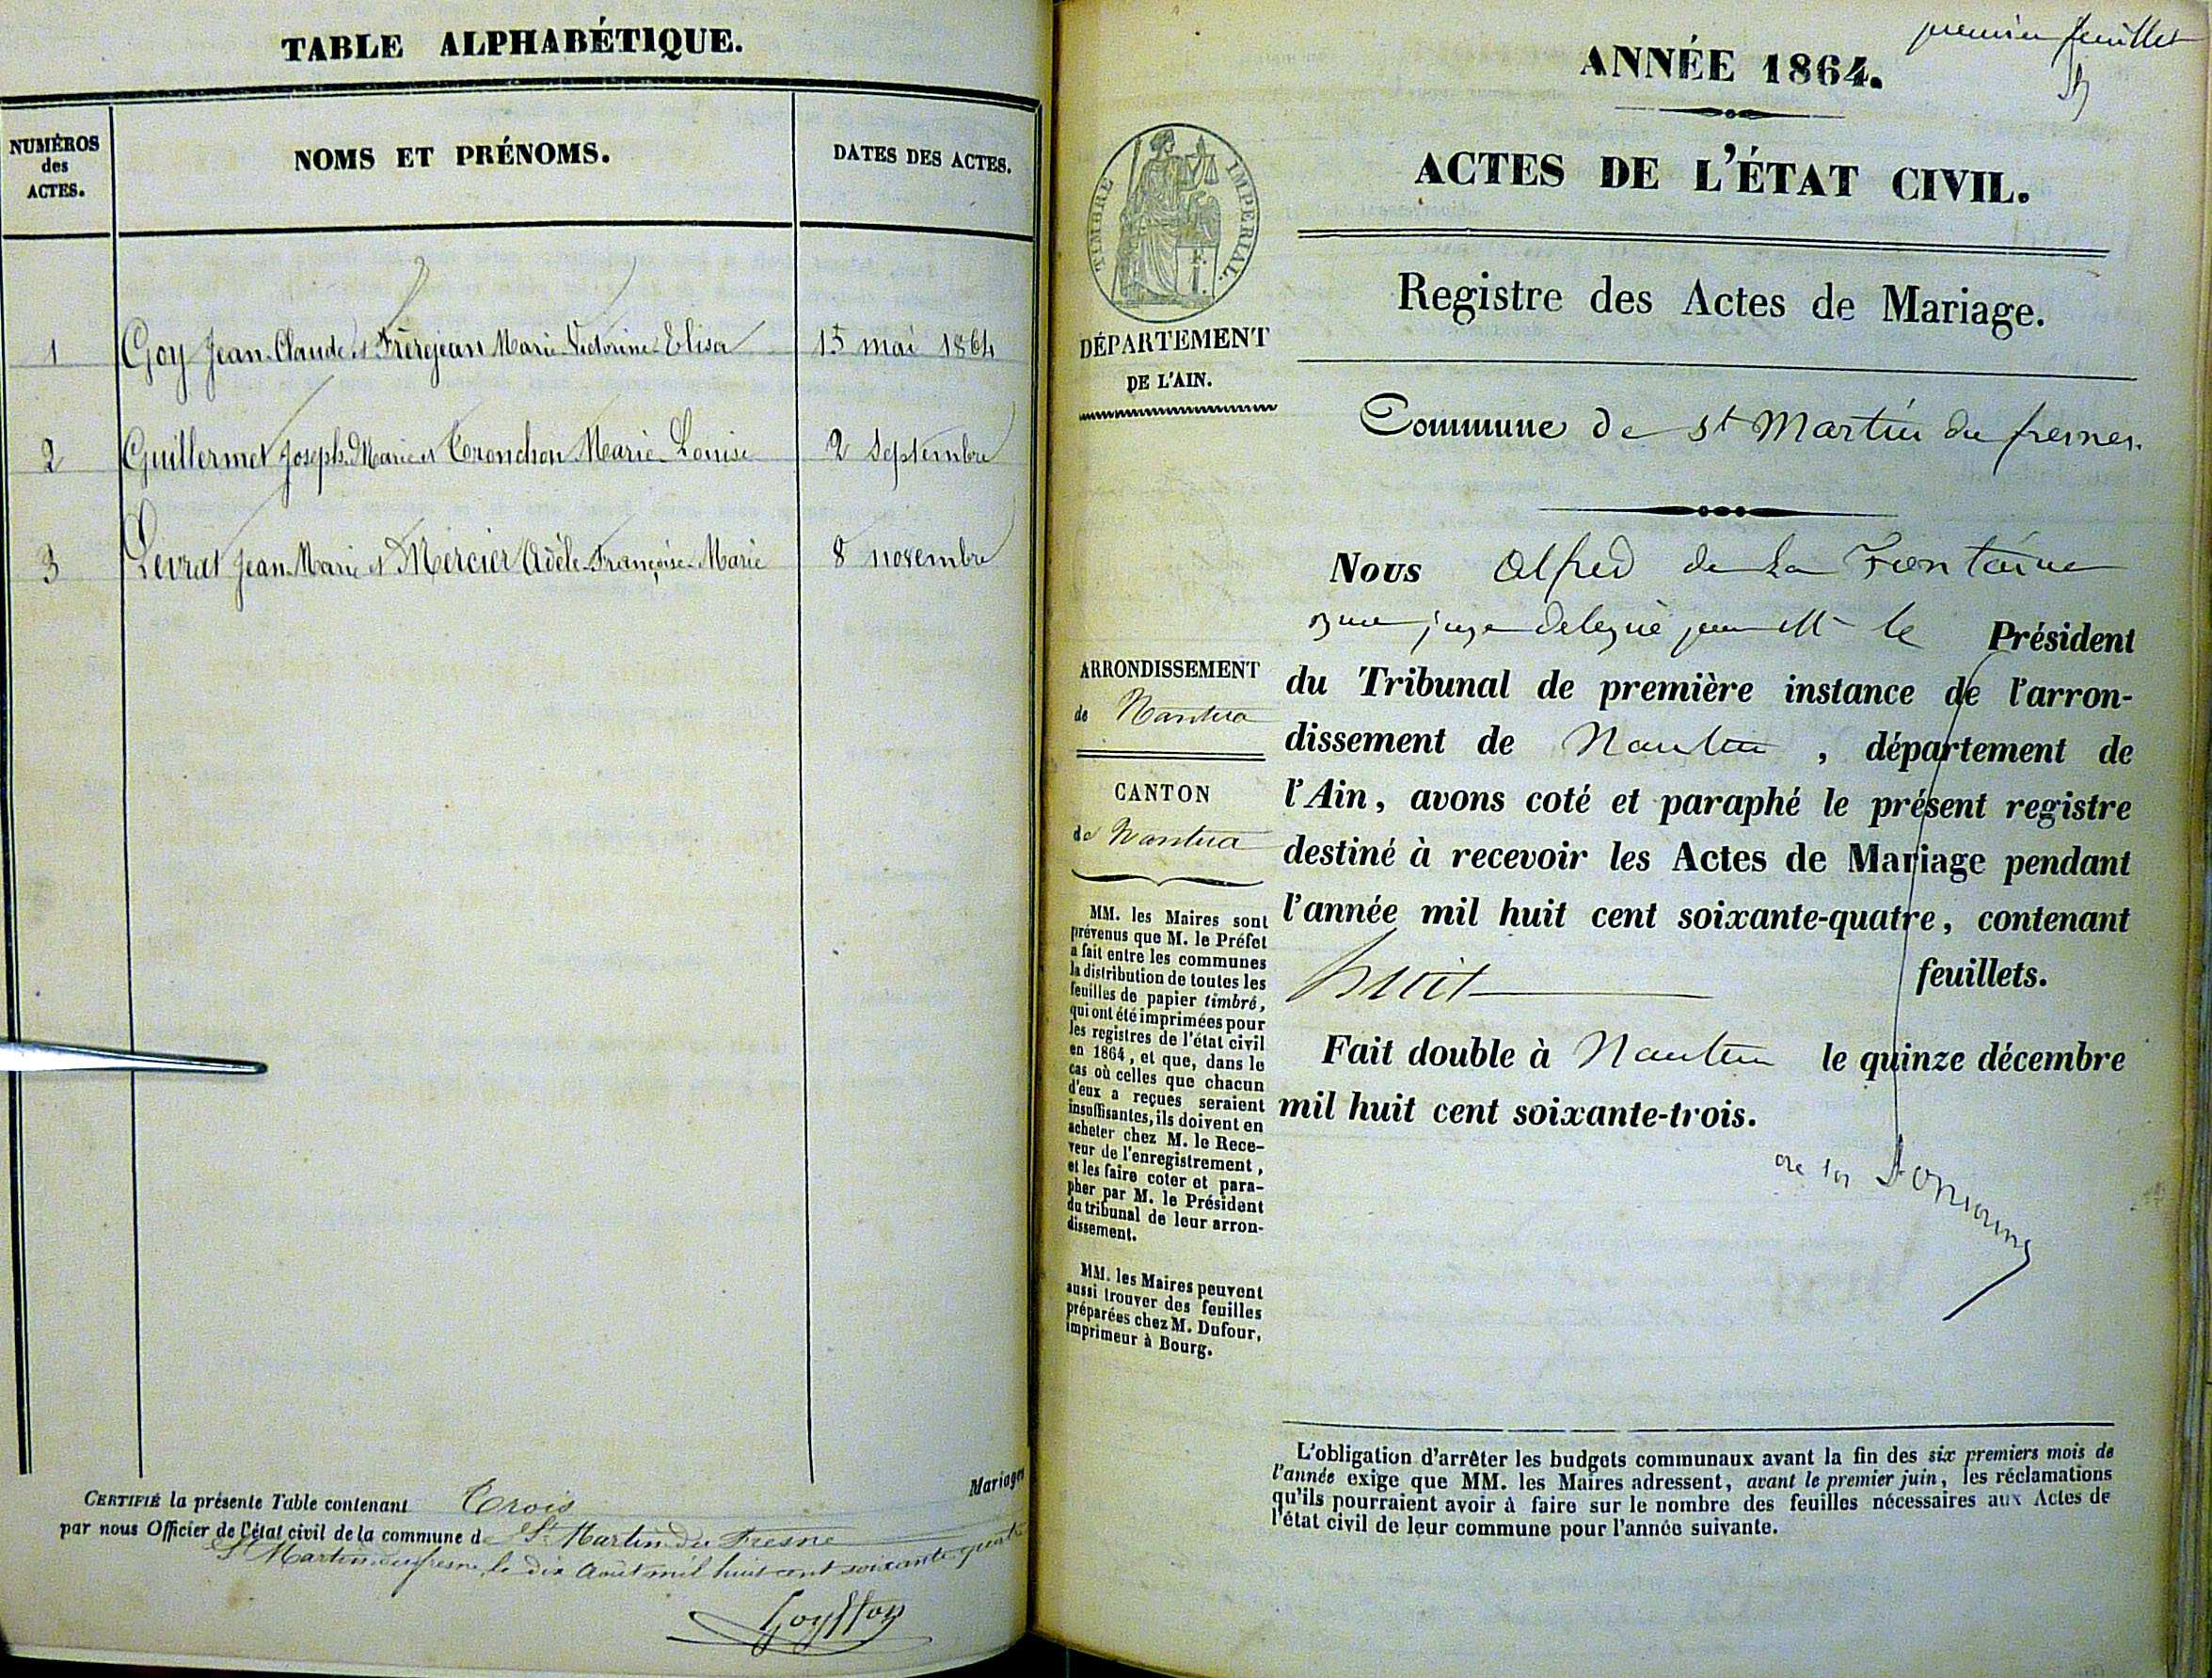 TABLE ALPHABÉTIQUE.
NUMÉROS
des
ACTES.
NOMS ET PRÉNOMS.
DATES DES ACTES.
1 Goy Jean-Claude et Frèrejean Marie-Victorine-Elisa 15 mai 1864
2 Guillermet Joseph-Marie et Tronchon Marie-Louise 2 Septembre
3 Levrat Jean-Marie et Mercier Adèle-Françoise-Marie 8 novembre
Mariages
CERTIFIÉ la présente Table contenant Trois
par nous Officier de l'état civil de la commune de St Martin du Fresne
St Martin du fresne, le dix Août mil huit cent soixante quatre
premier feuillet
ANNÉE 1864.
ACTES DE L'ÉTAT CIVIL.
TIMBRE IMPÉRIAL.
DÉPARTEMENT
DE L'AIN.
Registre des Actes de Mariage.
Commune de st Martin du fresnes.
ARRONDISSEMENT
de Nantua
CANTON
de Nantua
MM. les Maires sont
prévenus que M. le Préfet
a fait entre les communes
la distribution de toutes les
feuilles de papier timbré,
qui ont été imprimées pour
les registres de l'état civil
en 1864, et que, dans le
cas où celles que chacun
d'eux a reçues seraient
insuffisantes, ils doivent en
acheter chez M. le Rece-
veur de l'enregistrement,
et les faire coter et para-
pher par M. le Président
du tribunal de leur arron-
dissement.
MM. les Maires peuvent
aussi trouver des feuilles
préparées chez M. Dufour,
imprimeur à Bourg.
Nous Alfred de La Fontaine
juge délégué par Mr le Président
du Tribunal de première instance de l'arron-
dissement de Nantua, département de
l'Ain, avons coté et paraphé le présent registre
destiné à recevoir les Actes de Mariage pendant
l'année mil huit cent soixante-quatre, contenant
huit feuillets.
Fait double à Nantua le quinze décembre
mil huit cent soixante-trois.
L'obligation d'arrêter les budgets communaux avant la fin des six premiers mois de
l'année exige que MM. les Maires adressent, avant le premier juin, les réclamations
qu'ils pourraient avoir à faire sur le nombre des feuilles nécessaires aux Actes de
l'état civil de leur commune pour l'année suivante.